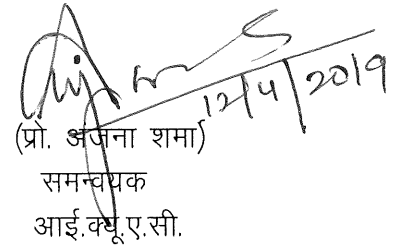 12/4/2019
(प्रो. अंजना शर्मा)
समन्वयक
आई.क्यू.ए.सी.